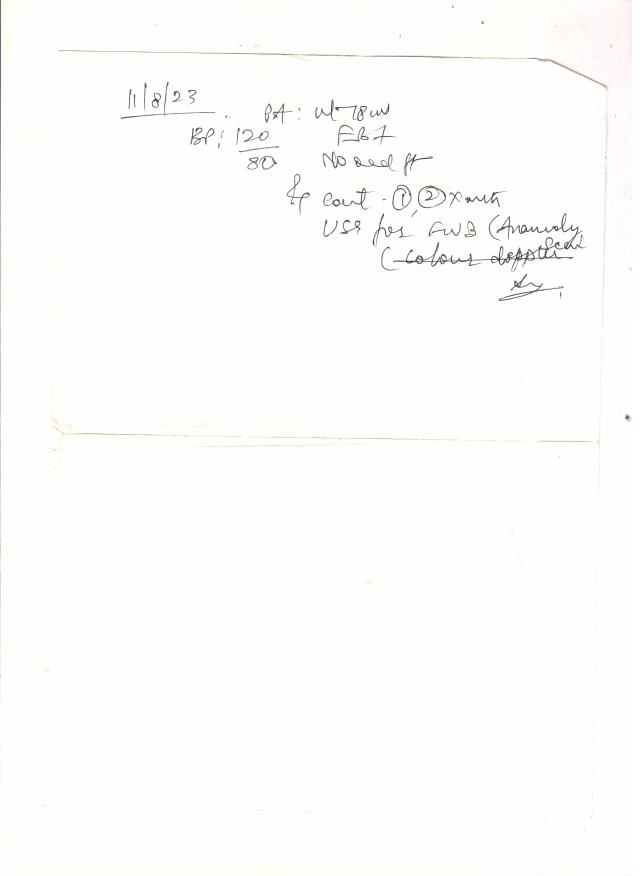 11/8/23 PA: ut 18 wk
BP: 120/80 FB1
No
Rx cont. ①, ② x mth
USG for FWB (Anamoly Scan
(colour doppler